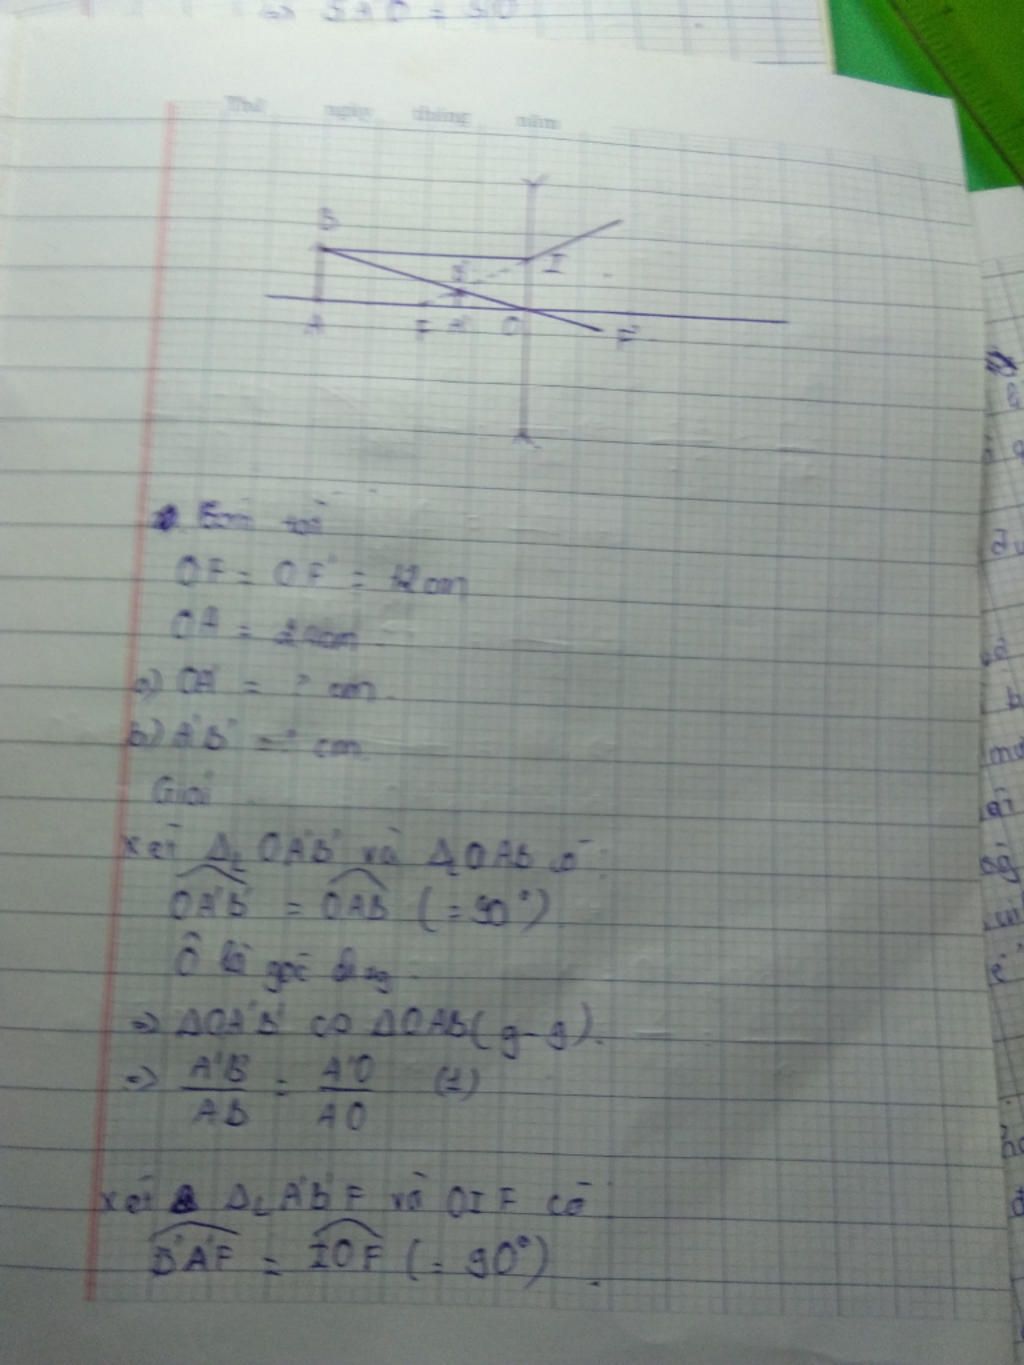 Thứ ngày tháng năm
B
I
B'
A F A' O F'
Tóm tắt
OF = OF' = 12cm
OA = 24cm
a) OA' = ? cm.
b) A'B' = ? cm
Giải
Xét Δ OA'B' và Δ OAB có:
OA'B' = OAB (=90°)
Ô là góc chung
=> ΔOA'B' ∽ ΔOAB (g-g).
=> A'B'/AB = A'O/AO (1)
Xét Δ A'B'F và OIF có:
B'A'F = IOF (= 90°)